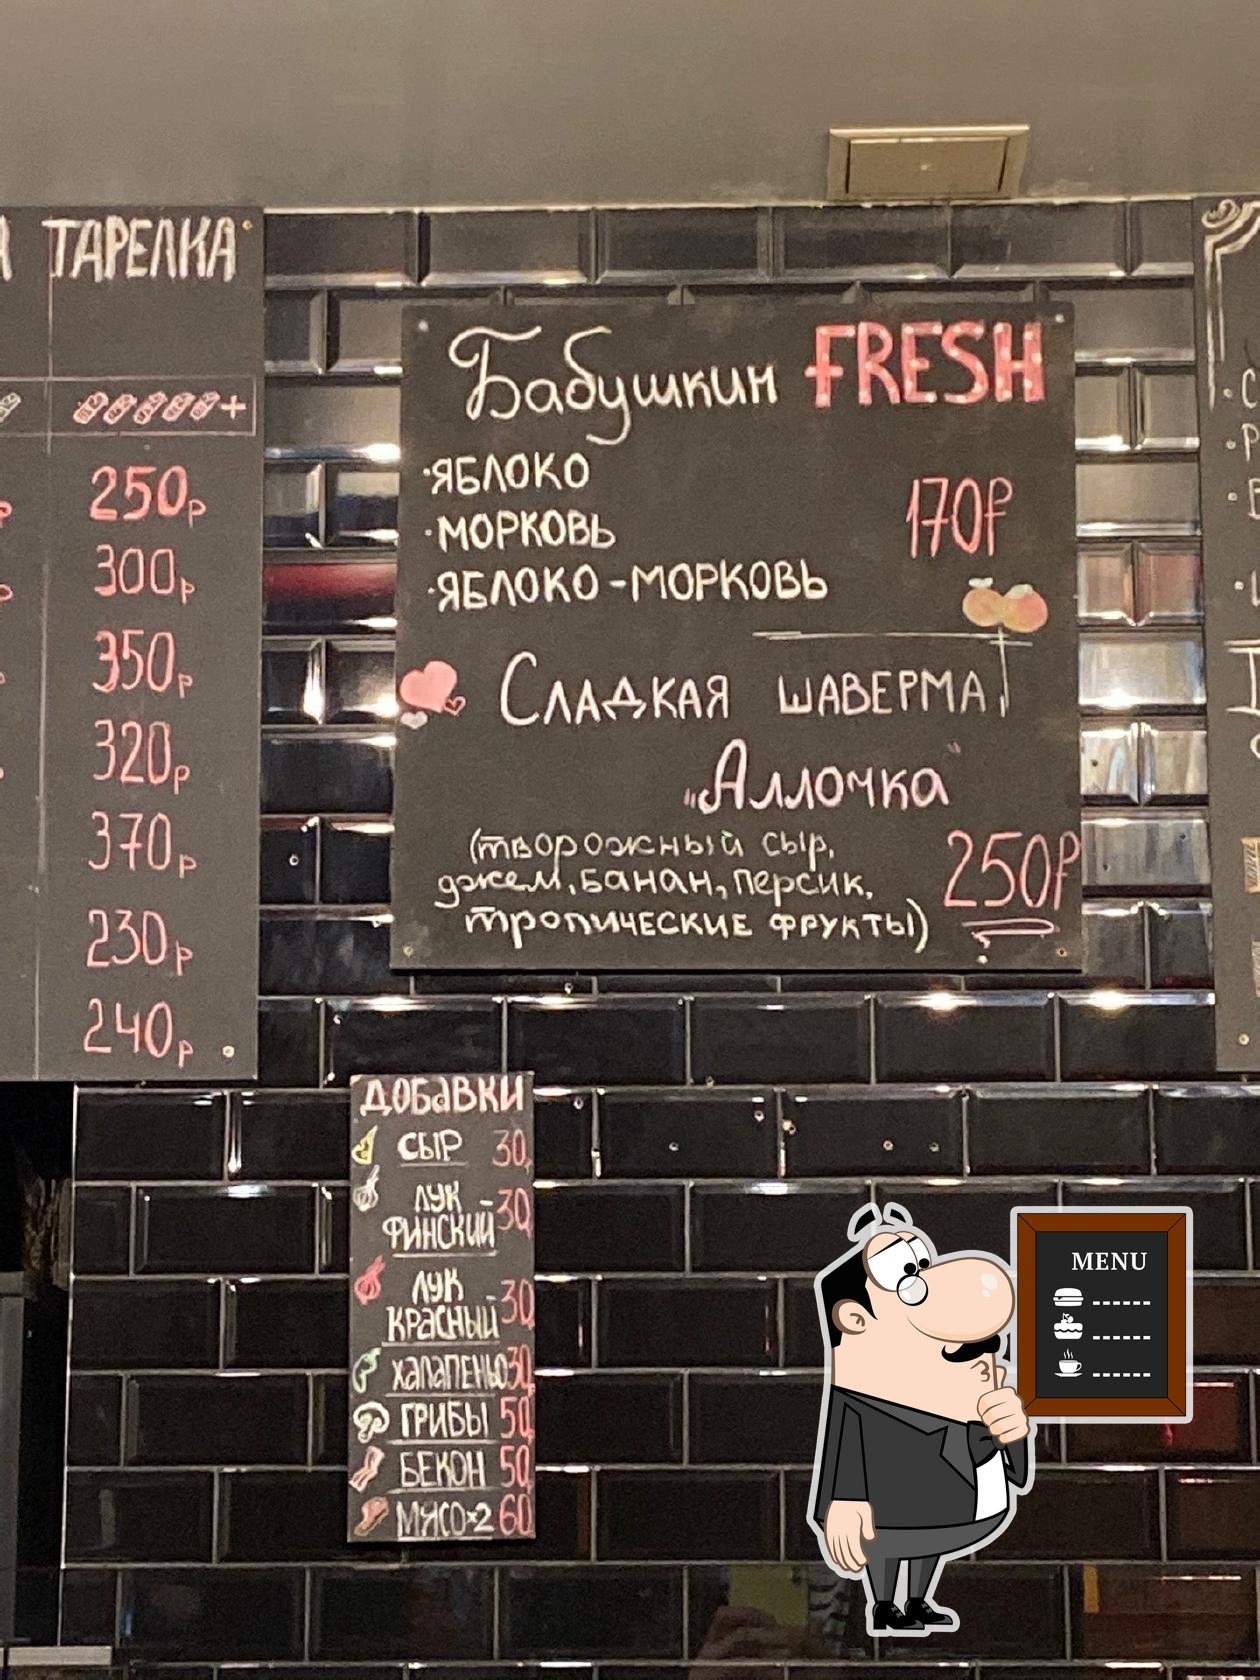 ТАРЕЛКА
+
250р
300р
350р
320р
370р
230р
240р
Бабушкин FRESH
·ЯБЛОКО
·МОРКОВЬ
170₽
·ЯБЛОКО-МОРКОВЬ
СЛАДКАЯ ШАВЕРМА
„Аллочка"
(творожный сыр,
джем, банан, персик,
250₽
тропические фрукты)
ДОБАВКИ
СЫР 30
ЛУК
ФИНСКИЙ -30
ЛУК
КРАСНЫЙ -30
ХАЛАПЕНЬО 30
ГРИБЫ 50
БЕКОН 50
МЯСО×2 60
MENU